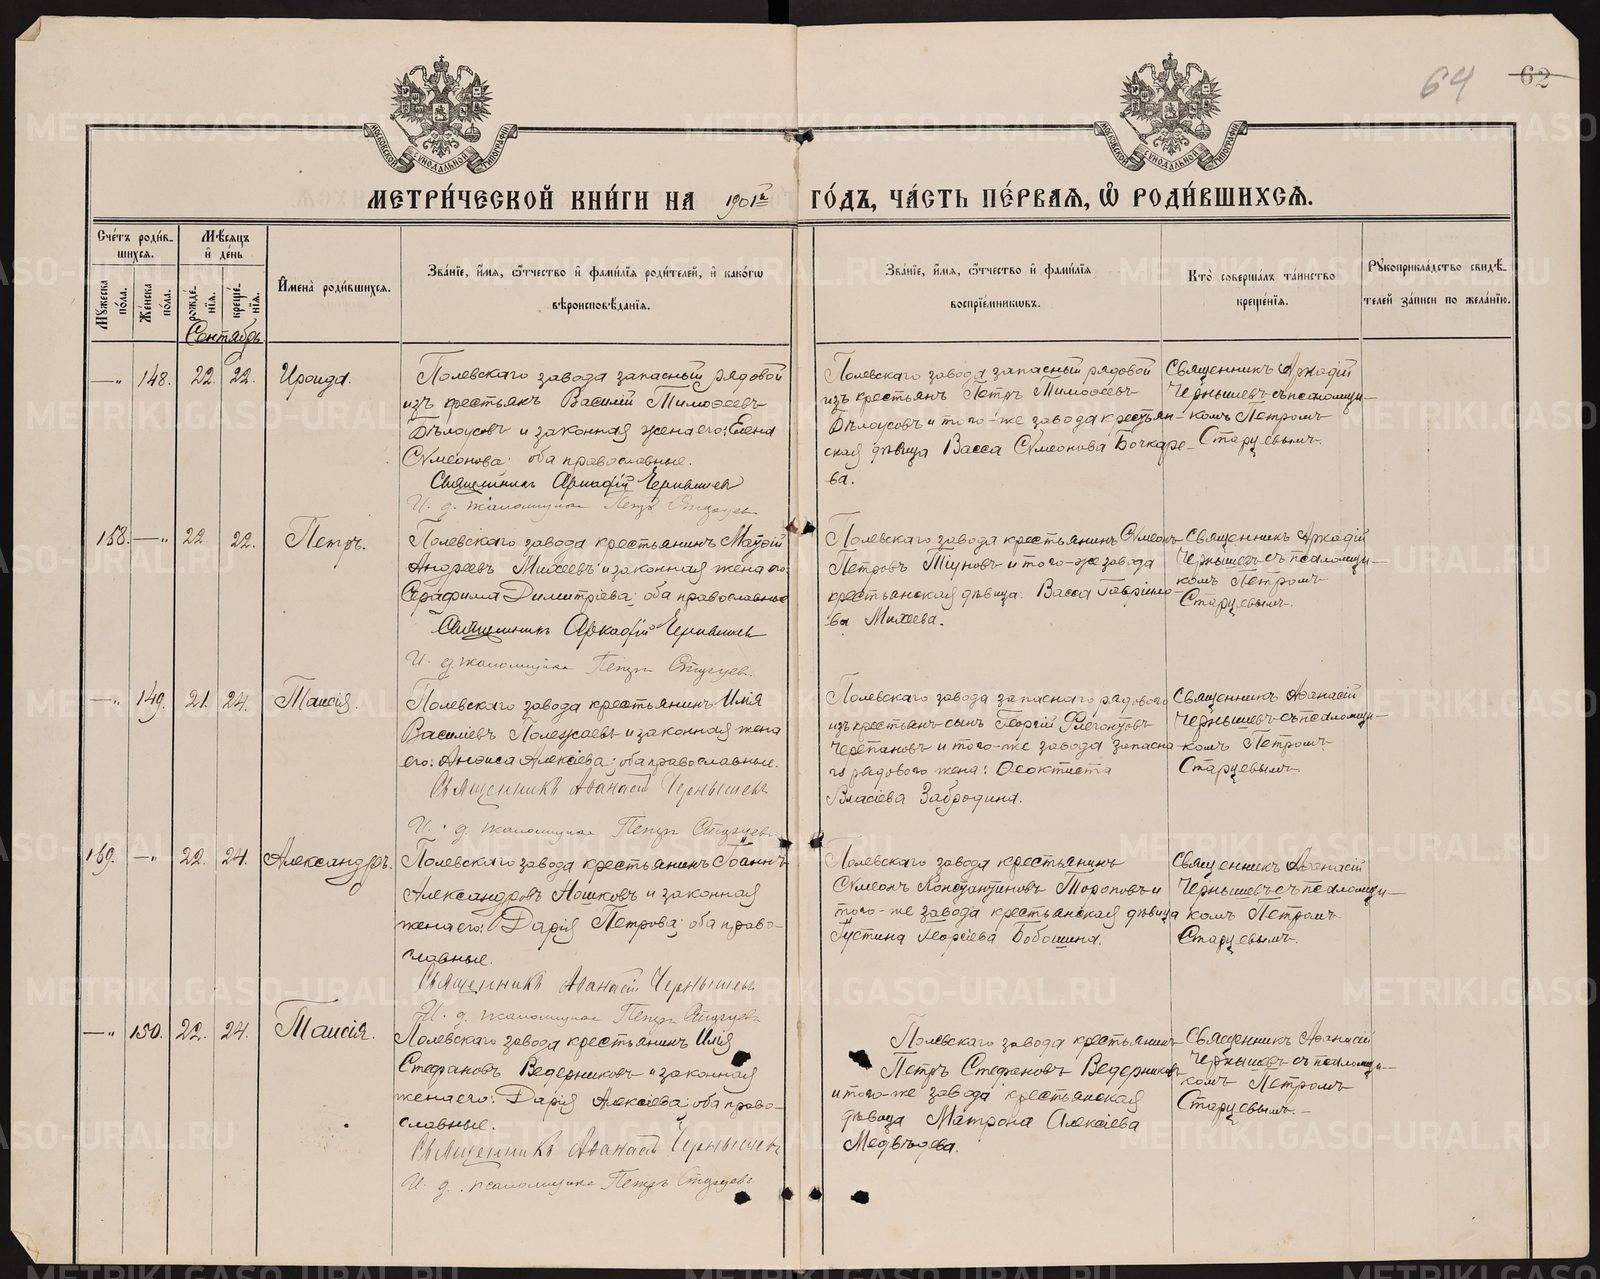 64 62
МОСКОВСКОЙ СѴНОДАЛЬНОЙ ТИПОГРАФІИ
МОСКОВСКОЙ СѴНОДАЛЬНОЙ ТИПОГРАФІИ
МЕТРИ́ЧЕСКОЙ КНИ́ГИ НА 1901й ГО́ДЪ, ЧА́СТЬ ПЕ́РВАѦ, Ѡ҆ РОДИ́ВШИХСѦ.
Сче́тъ роди́в-
шихся.
Мꙋ́жеска по́ла.
Же́нска по́ла.
Мѣ́сяцъ
и҆ де́нь
рожде́нїя.
креще́нїя.
И҆мена̀ роди́вшихся.
Зва́нїе, и҆́мя, ѻ҆́тчество и҆ фами́лїя роди́телей, и҆ како́гѡ
вѣроисповѣ́данїя.
Зва́нїе, и҆́мя, ѻ҆́тчество и҆ фами́лїя
воспрїе́мникѡвъ.
Кто̀ соверша́лъ та́инство
креще́нїя.
Рꙋкоприкла́дство свидѣ́-
телей за́писи по жела́нїю.
Сентябрь
—„ 148. 22. 22. Ироида.
Полевскаго завода запасный рядовой
изъ крестьянъ Василій Тимоѳеевъ
Бѣлоусовъ и законная жена его: Елена
Сѵмеонова; оба православные.
Священникъ Аркадій Чернышевъ
И. д. псаломщика Петръ Старцевъ
Полевскаго завода запасный рядовой
изъ крестьянъ Петръ Тимоѳеевъ
Бѣлоусовъ и того-же завода крестьян-
ская дѣвица Васса Сѵмеонова Бочкаре-
ва.
Священникъ Аркадій
Чернышевъ съ псаломщи-
комъ Петромъ
Старцевымъ.
158. —„ 22. 22. Петръ.
Полевскаго завода крестьянинъ Матѳій
Андреевъ Михеевъ и законная жена его:
Серафима Димитріева; оба православные
Священникъ Аркадій Чернышевъ
И. д. псаломщика Петръ Старцевъ.
Полевскаго завода крестьянинъ Сѵмеонъ
Петровъ Тіуновъ и того-же завода
крестьянская дѣвица. Васса Гаврило-
ва Михеева.
Священникъ Аркадій
Чернышевъ съ псаломщи-
комъ Петромъ
Старцевымъ.
—„ 149. 21. 24. Таисія.
Полевскаго завода крестьянинъ Илія
Василіевъ Полежаевъ и законная жена
его: Анѳиса Алексіева; оба православные.
Священникъ Аѳанасій Чернышевъ
И. д. псаломщика Петръ Старцевъ
Полевскаго завода запаснаго рядового
изъ крестьянъ сынъ Георгій Флегонтовъ
Черепановъ и того-же завода запасна-
го рядового жена: Ѳеоктиста
Власіева Забродина.
Священникъ Аѳанасій
Чернышевъ съ псаломщи-
комъ Петромъ
Старцевымъ.
159. —„ 22. 24. Александръ.
Полевскаго завода крестьянинъ Іоаннъ
Александровъ Кошковъ и законная
жена его: Дарія Петрова; оба право-
славные.
Священникъ Аѳанасій Чернышевъ
И. д. псаломщика Петръ Старцевъ
Полевскаго завода крестьянинъ
Сѵмеонъ Константиновъ Тороповъ и
того-же завода крестьянская дѣвица
Іустина Георгіева Бобошина.
Священникъ Аѳанасій
Чернышевъ съ псаломщи-
комъ Петромъ
Старцевымъ.
—„ 150. 22. 24. Таисія.
Полевскаго завода крестьянинъ Илія
Стефановъ Ведерниковъ и законная
жена его: Дарія Алексіева; оба право-
славные.
Священникъ Аѳанасій Чернышевъ
И. д. псаломщика Петръ Старцевъ
Полевскаго завода крестьянинъ
Петръ Стефановъ Ведерниковъ
и того-же завода крестьянская
дѣвица Матрона Алексіева
Медвѣдева.
Священникъ Аѳанасій
Чернышевъ съ псаломщи-
комъ Петромъ
Старцевымъ.
METRIKI.GASO-URAL.RU